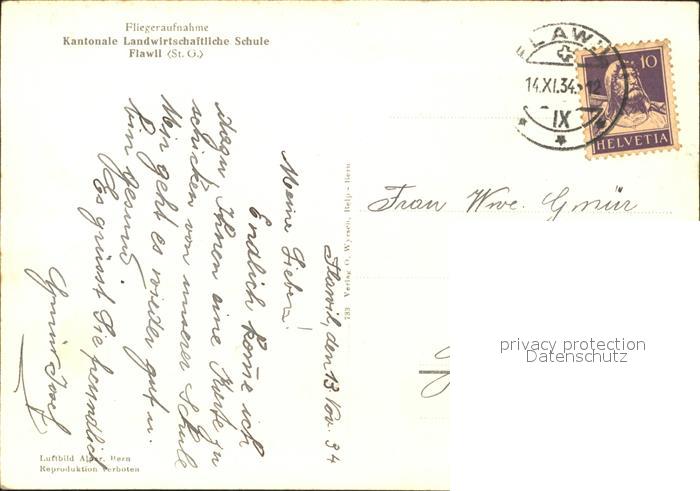 Fliegeraufnahme
Kantonale Landwirtschaftliche Schule
Flawil (St. G.)
FLAWIL
14.XI.34. 12
IX
10
HELVETIA
Frau Wwe. Gmür
privacy protection
Datenschutz
733 Verlag O. Wyrsch, Belp - Bern
Flawil, den 13 Nov. 34
Meine Lieben!
Endlich kome ich
dazu Ihnen eine Karte zu
schicken von unserer Schule
Mir geht es wieder gut u.
bin gesund.
Es grüsst Sie freundlich
Gmür Josef
Luftbild Bern
Reproduktion verboten